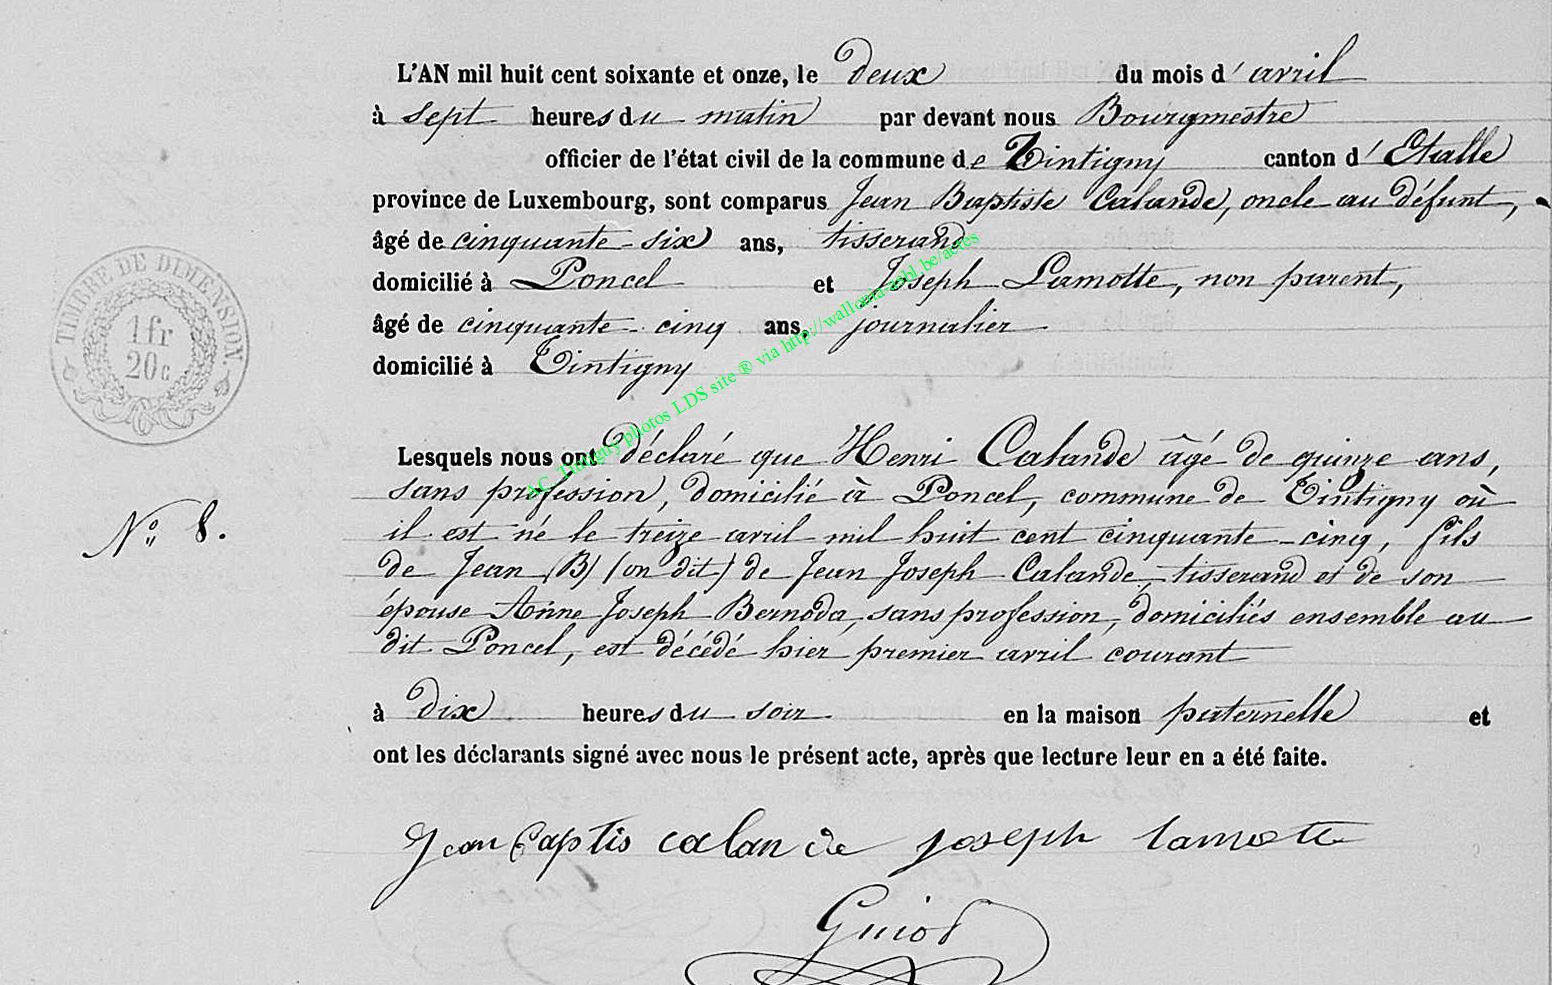 L'AN mil huit cent soixante et onze, le deux du mois d' avril
à sept heures du matin par devant nous Bourgmestre
officier de l'état civil de la commune de Tintigny canton d' Etalle
province de Luxembourg, sont comparus Jean Baptiste Calande, oncle au défunt,
âgé de cinquante-six ans, tisserand
domicilié à Poncel et Joseph Lamotte, non parent,
âgé de cinquante-cinq ans, journalier
domicilié à Tintigny
TIMBRE DE DIMENSION.
1 fr
20 c
AC Tintigny photos LDS site ® via http://wallonia-asbl.be/actes
Lesquels nous ont déclaré que Henri Calande âgé de quinze ans,
sans profession, domicilié à Poncel, commune de Tintigny où
N° 8.
il est né le treize avril mil huit cent cinquante-cinq, fils
de Jean (B) (on dit) de Jean Joseph Calande, tisserand et de son
épouse Anne Joseph Bernoda, sans profession, domiciliés ensemble au
dit Poncel, est décédé hier premier avril courant
à dix heures du soir en la maison paternelle et
ont les déclarants signé avec nous le présent acte, après que lecture leur en a été faite.
Jean Baptis calande joseph lamotte
Guiot